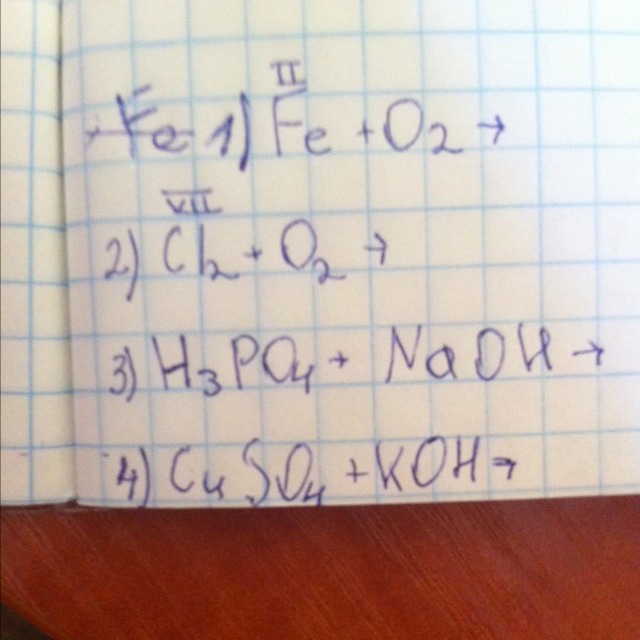 II
Fe 1) Fe + O2 →
VII
2) Cl2 + O2 →
3) H3PO4 + NaOH →
4) CuSO4 + KOH →